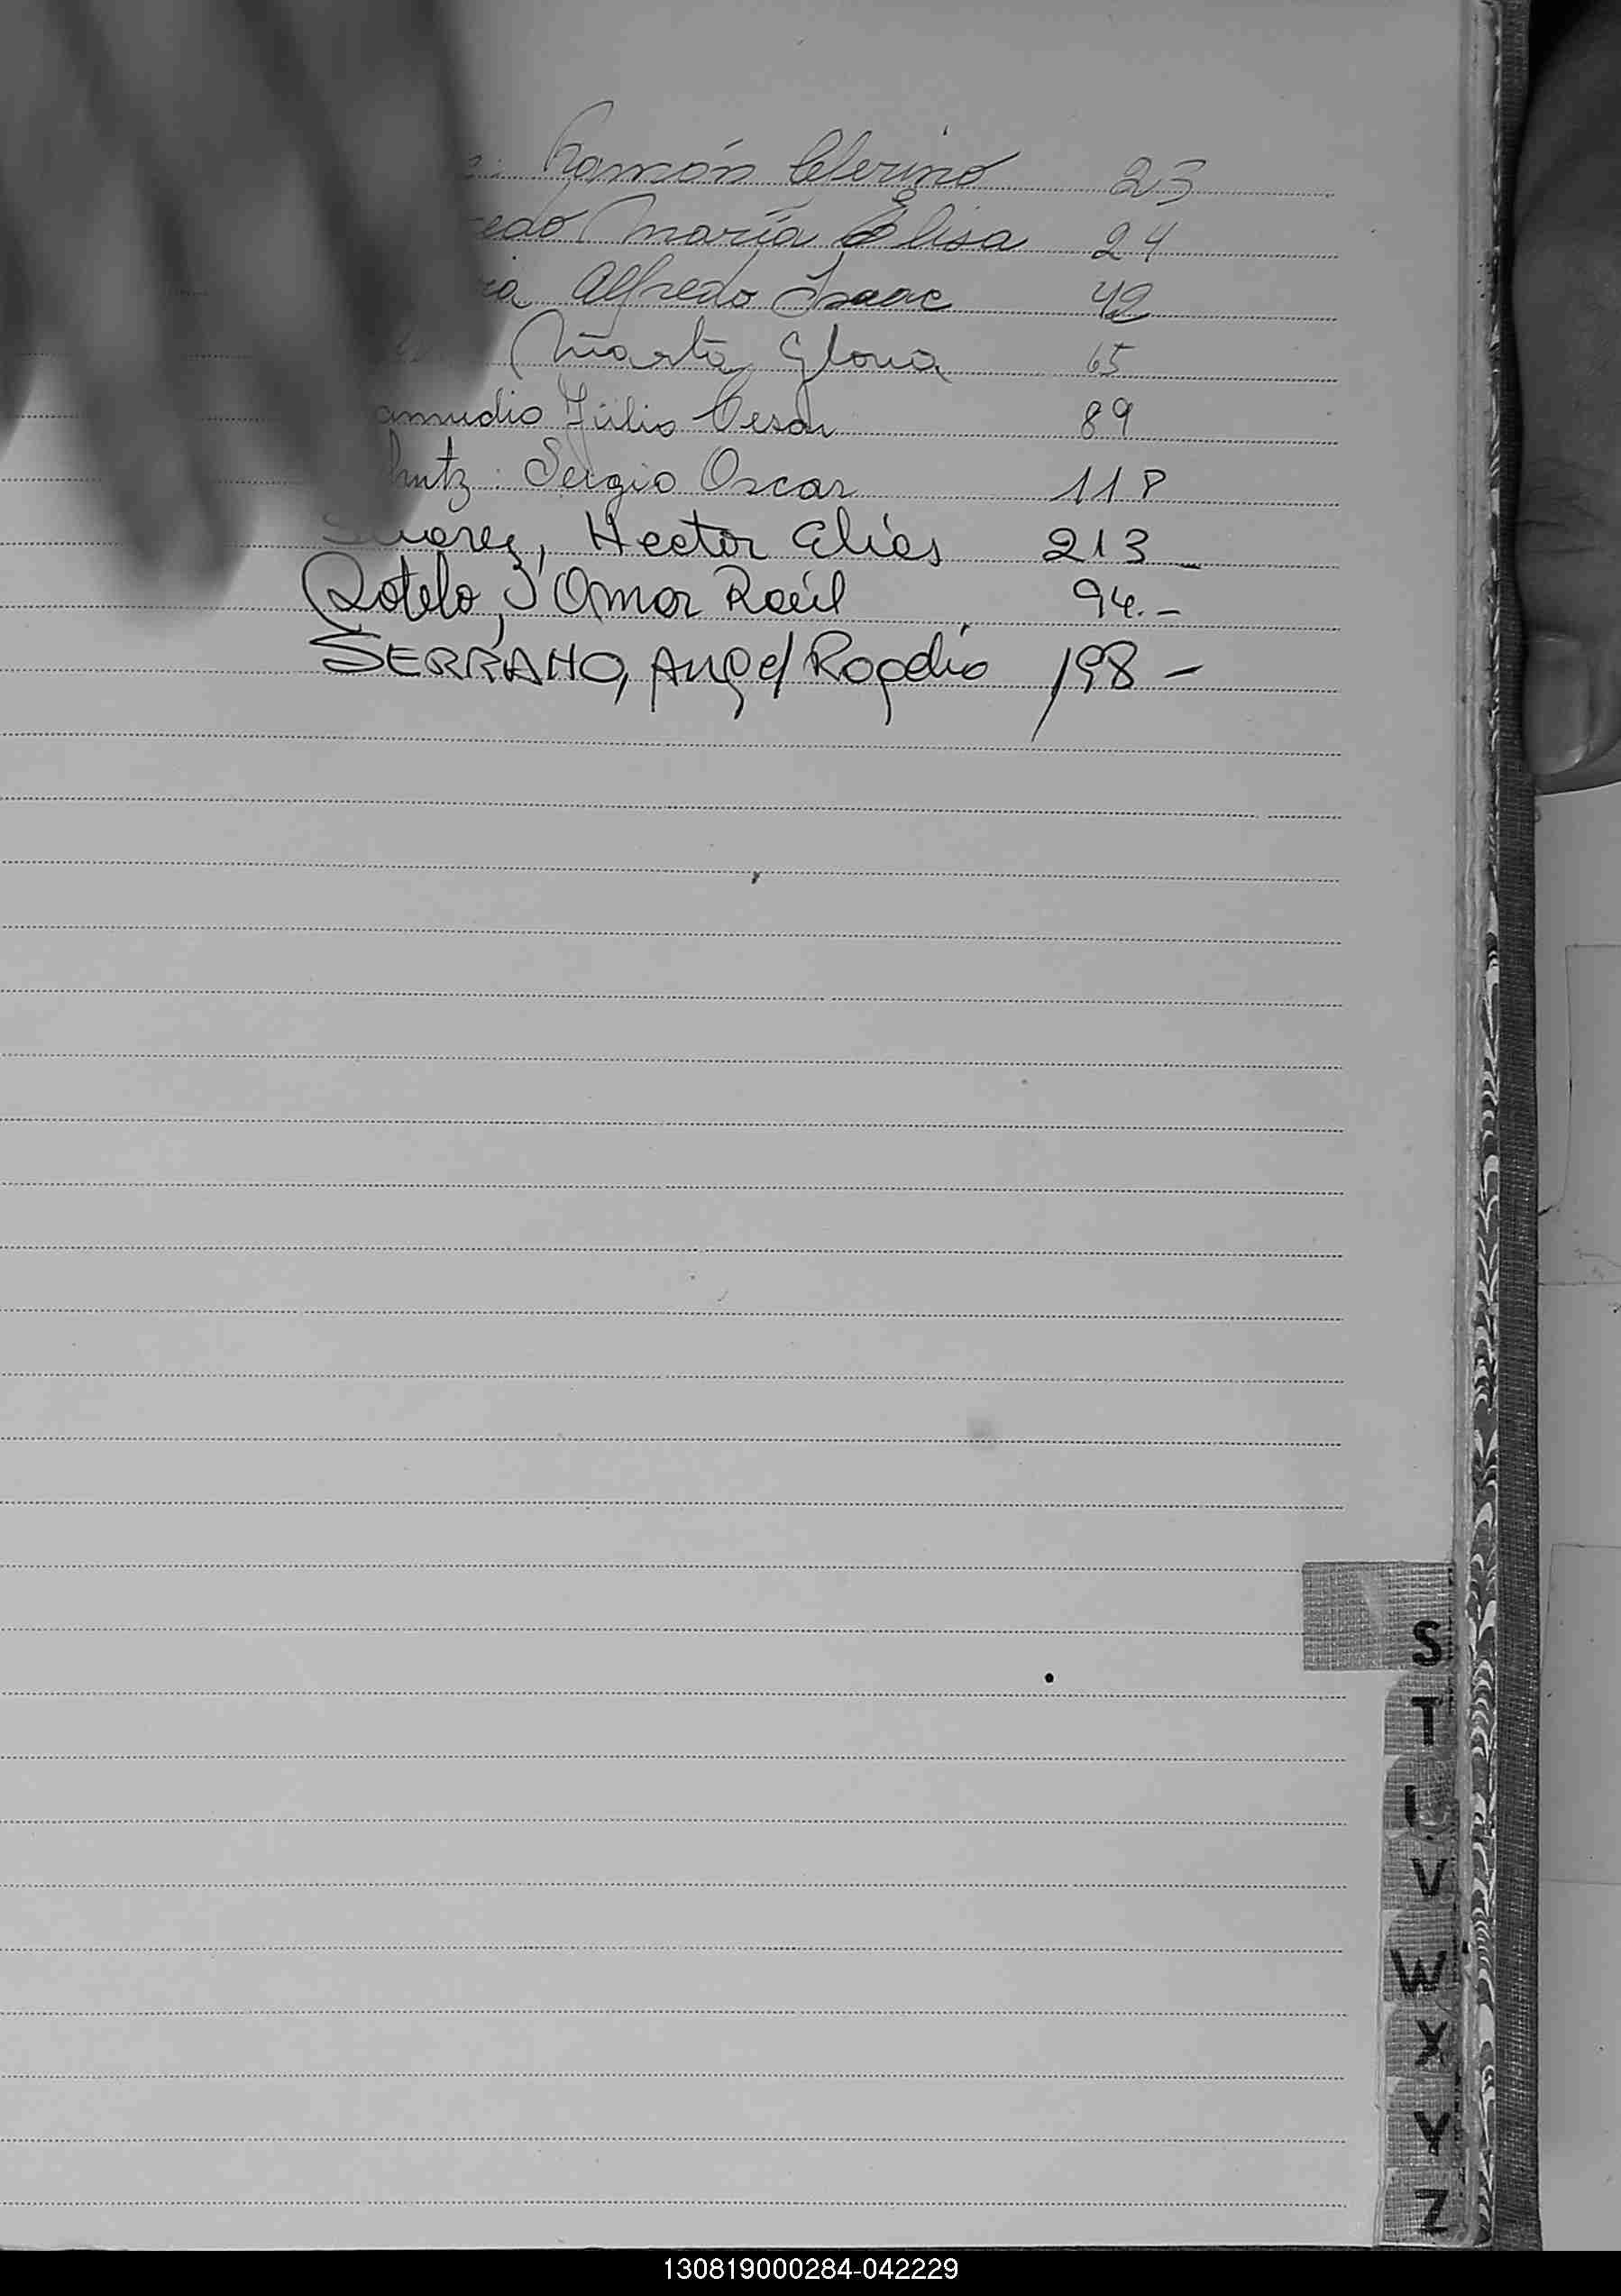 Ramón Ceferino 23
María Elisa 24
Alfredo Isaac 42
Marta Gloria 65
amudio Julio Cesar 89
hutz. Sergio Oscar 118
Suarez, Hector Elías 213_
Sotelo, Omar Raúl 94.-
SERRANO, Angel Rogelio 198-
S
T
V
W
X
Y
Z
130819000284-042229